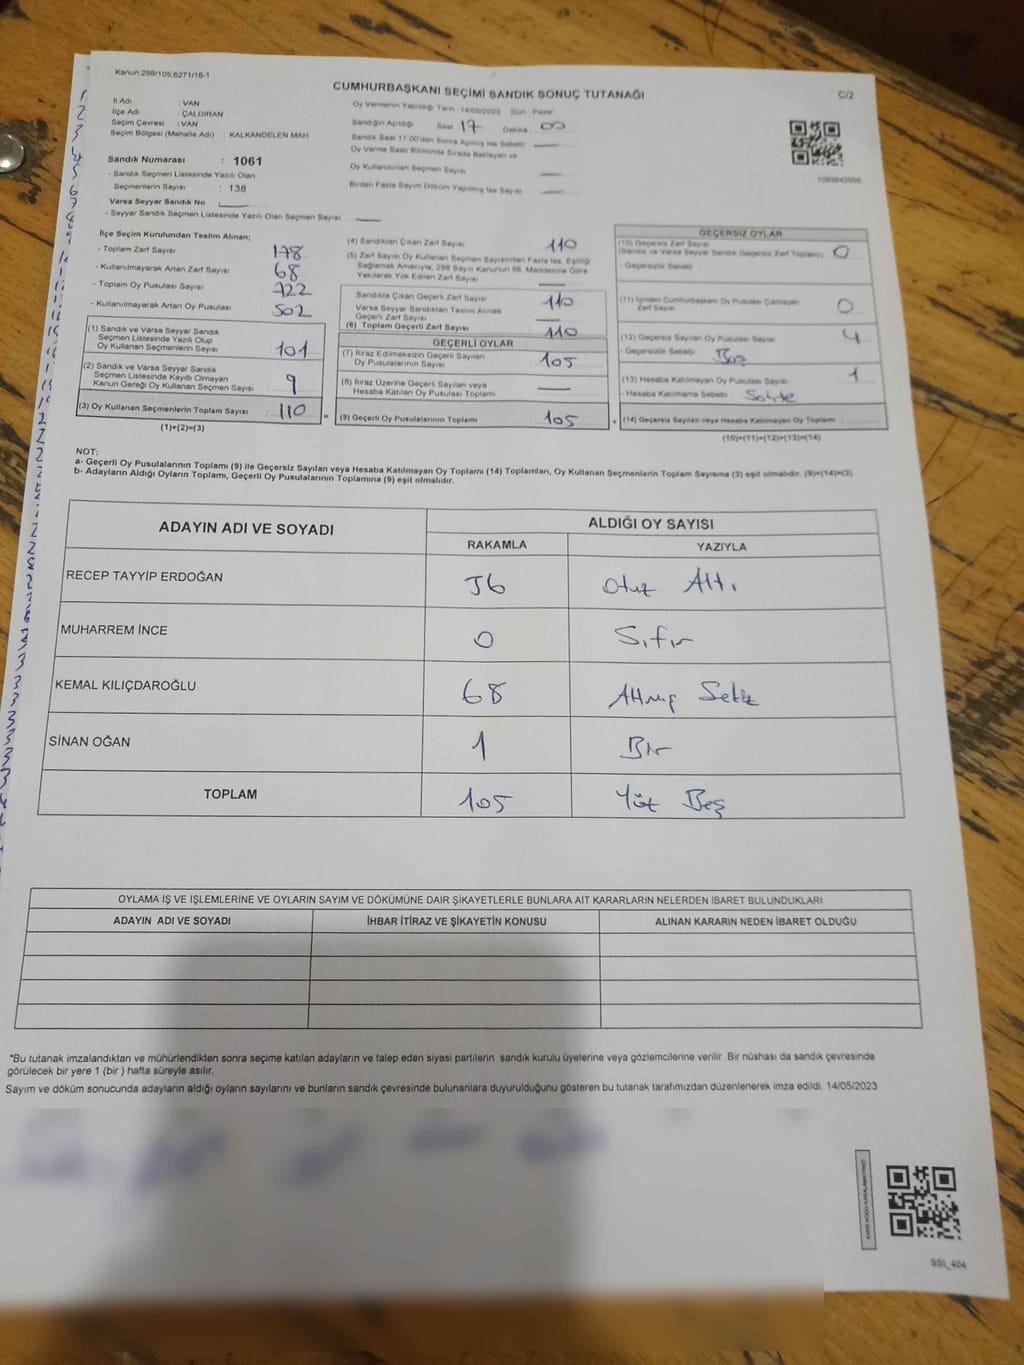 Kanun:298/105,6271/18-1
CUMHURBAŞKANI SEÇİMİ SANDIK SONUÇ TUTANAĞI
C/2
İl Adı : VAN
İlçe Adı : ÇALDIRAN
Seçim Çevresi : VAN
Seçim Bölgesi (Mahalle Adı) : KALKANDELEN MAH
Sandık Numarası : 1061
- Sandık Seçmen Listesinde Yazılı Olan
Seçmenlerin Sayısı : 138
Varsa Seyyar Sandık No
- Seyyar Sandık Seçmen Listesinde Yazılı Olan Seçmen Sayısı
Oy Vermenin Yapıldığı Tarih : 14/05/2023 Gün : Pazar
Sandığın Açıldığı Saat 17 Dakika 00
Sandık Saat 17.00'den Sonra Açılmış İse Sebebi
Oy Verme Saati Bitiminde Sırada Bekleyen ve
Oy Kullandırılan Seçmen Sayısı
Birden Fazla Sayım Döküm Yapılmış İse Sayısı
İlçe Seçim Kurulundan Teslim Alınan;
- Toplam Zarf Sayısı 178
- Kullanılmayarak Artan Zarf Sayısı 68
- Toplam Oy Pusulası Sayısı 722
- Kullanılmayarak Artan Oy Pusulası 502
(1) Sandık ve Varsa Seyyar Sandık
Seçmen Listesinde Yazılı Olup
Oy Kullanan Seçmenlerin Sayısı : 101
(2) Sandık ve Varsa Seyyar Sandık
Seçmen Listesinde Kayıtlı Olmayan
Kanun Gereği Oy Kullanan Seçmen Sayısı : 9
(3) Oy Kullanan Seçmenlerin Toplam Sayısı : 110
(1)+(2)=(3)
(4) Sandıktan Çıkan Zarf Sayısı 110
(5) Zarf Sayısı Oy Kullanan Seçmen Sayısından Fazla İse, Eşitliği
Sağlamak Amacıyla, 298 Sayılı Kanunun 98. Maddesine Göre
Yakılarak Yok Edilen Zarf Sayısı
Sandıkta Çıkan Geçerli Zarf Sayısı 110
Varsa Seyyar Sandıktan Teslim Alınan
Geçerli Zarf Sayısı
(6) Toplam Geçerli Zarf Sayısı 110
GEÇERLİ OYLAR
(7) İtiraz Edilmeksizin Geçerli Sayılan
Oy Pusulalarının Sayısı 105
(8) İtiraz Üzerine Geçerli Sayılan veya
Hesaba Katılan Oy Pusulası Toplamı
= (9) Geçerli Oy Pusulalarının Toplamı 105
GEÇERSİZ OYLAR
(10) Geçersiz Zarf Sayısı
(Sandık ve Varsa Seyyar Sandık Geçersiz Zarf Toplamı) 0
- Geçersizlik Sebebi
(11) İçinden Cumhurbaşkanı Oy Pusulası Çıkmayan
Zarf Sayısı 0
(12) Geçersiz Sayılan Oy Pusulası Sayısı 4
- Geçersizlik Sebebi Boş
(13) Hesaba Katılmayan Oy Pusulası Sayısı 1
- Hesaba Katılmama Sebebi Sahte
+ (14) Geçersiz Sayılan veya Hesaba Katılmayan Oy Toplamı
(10)+(11)+(12)+(13)=(14)
NOT:
a- Geçerli Oy Pusulalarının Toplamı (9) ile Geçersiz Sayılan veya Hesaba Katılmayan Oy Toplamı (14) Toplamları, Oy Kullanan Seçmenlerin Toplam Sayısına (3) eşit olmalıdır. (9)+(14)=(3)
b- Adayların Aldığı Oyların Toplamı, Geçerli Oy Pusulalarının Toplamına (9) eşit olmalıdır.
ADAYIN ADI VE SOYADI ALDIĞI OY SAYISI
RAKAMLA YAZIYLA
RECEP TAYYİP ERDOĞAN 36 Otuz Altı
MUHARREM İNCE 0 Sıfır
KEMAL KILIÇDAROĞLU 68 Altmış Sekiz
SİNAN OĞAN 1 Bir
TOPLAM 105 Yüz Beş
OYLAMA İŞ VE İŞLEMLERİNE VE OYLARIN SAYIM VE DÖKÜMÜNE DAİR ŞİKAYETLERLE BUNLARA AİT KARARLARIN NELERDEN İBARET BULUNDUKLARI
ADAYIN ADI VE SOYADI İHBAR İTİRAZ VE ŞİKAYETİN KONUSU ALINAN KARARIN NEDEN İBARET OLDUĞU
*Bu tutanak imzalandıktan ve mühürlendikten sonra seçime katılan adayların ve talep eden siyasi partilerin sandık kurulu üyelerine veya gözlemcilerine verilir. Bir nüshası da sandık çevresinde
görülecek bir yere 1 (bir ) hafta süreyle asılır.
Sayım ve döküm sonucunda adayların aldığı oyların sayılarını ve bunların sandık çevresinde bulunanlara duyurulduğunu gösteren bu tutanak tarafımızdan düzenlenerek imza edildi. 14/05/2023
SSI_404